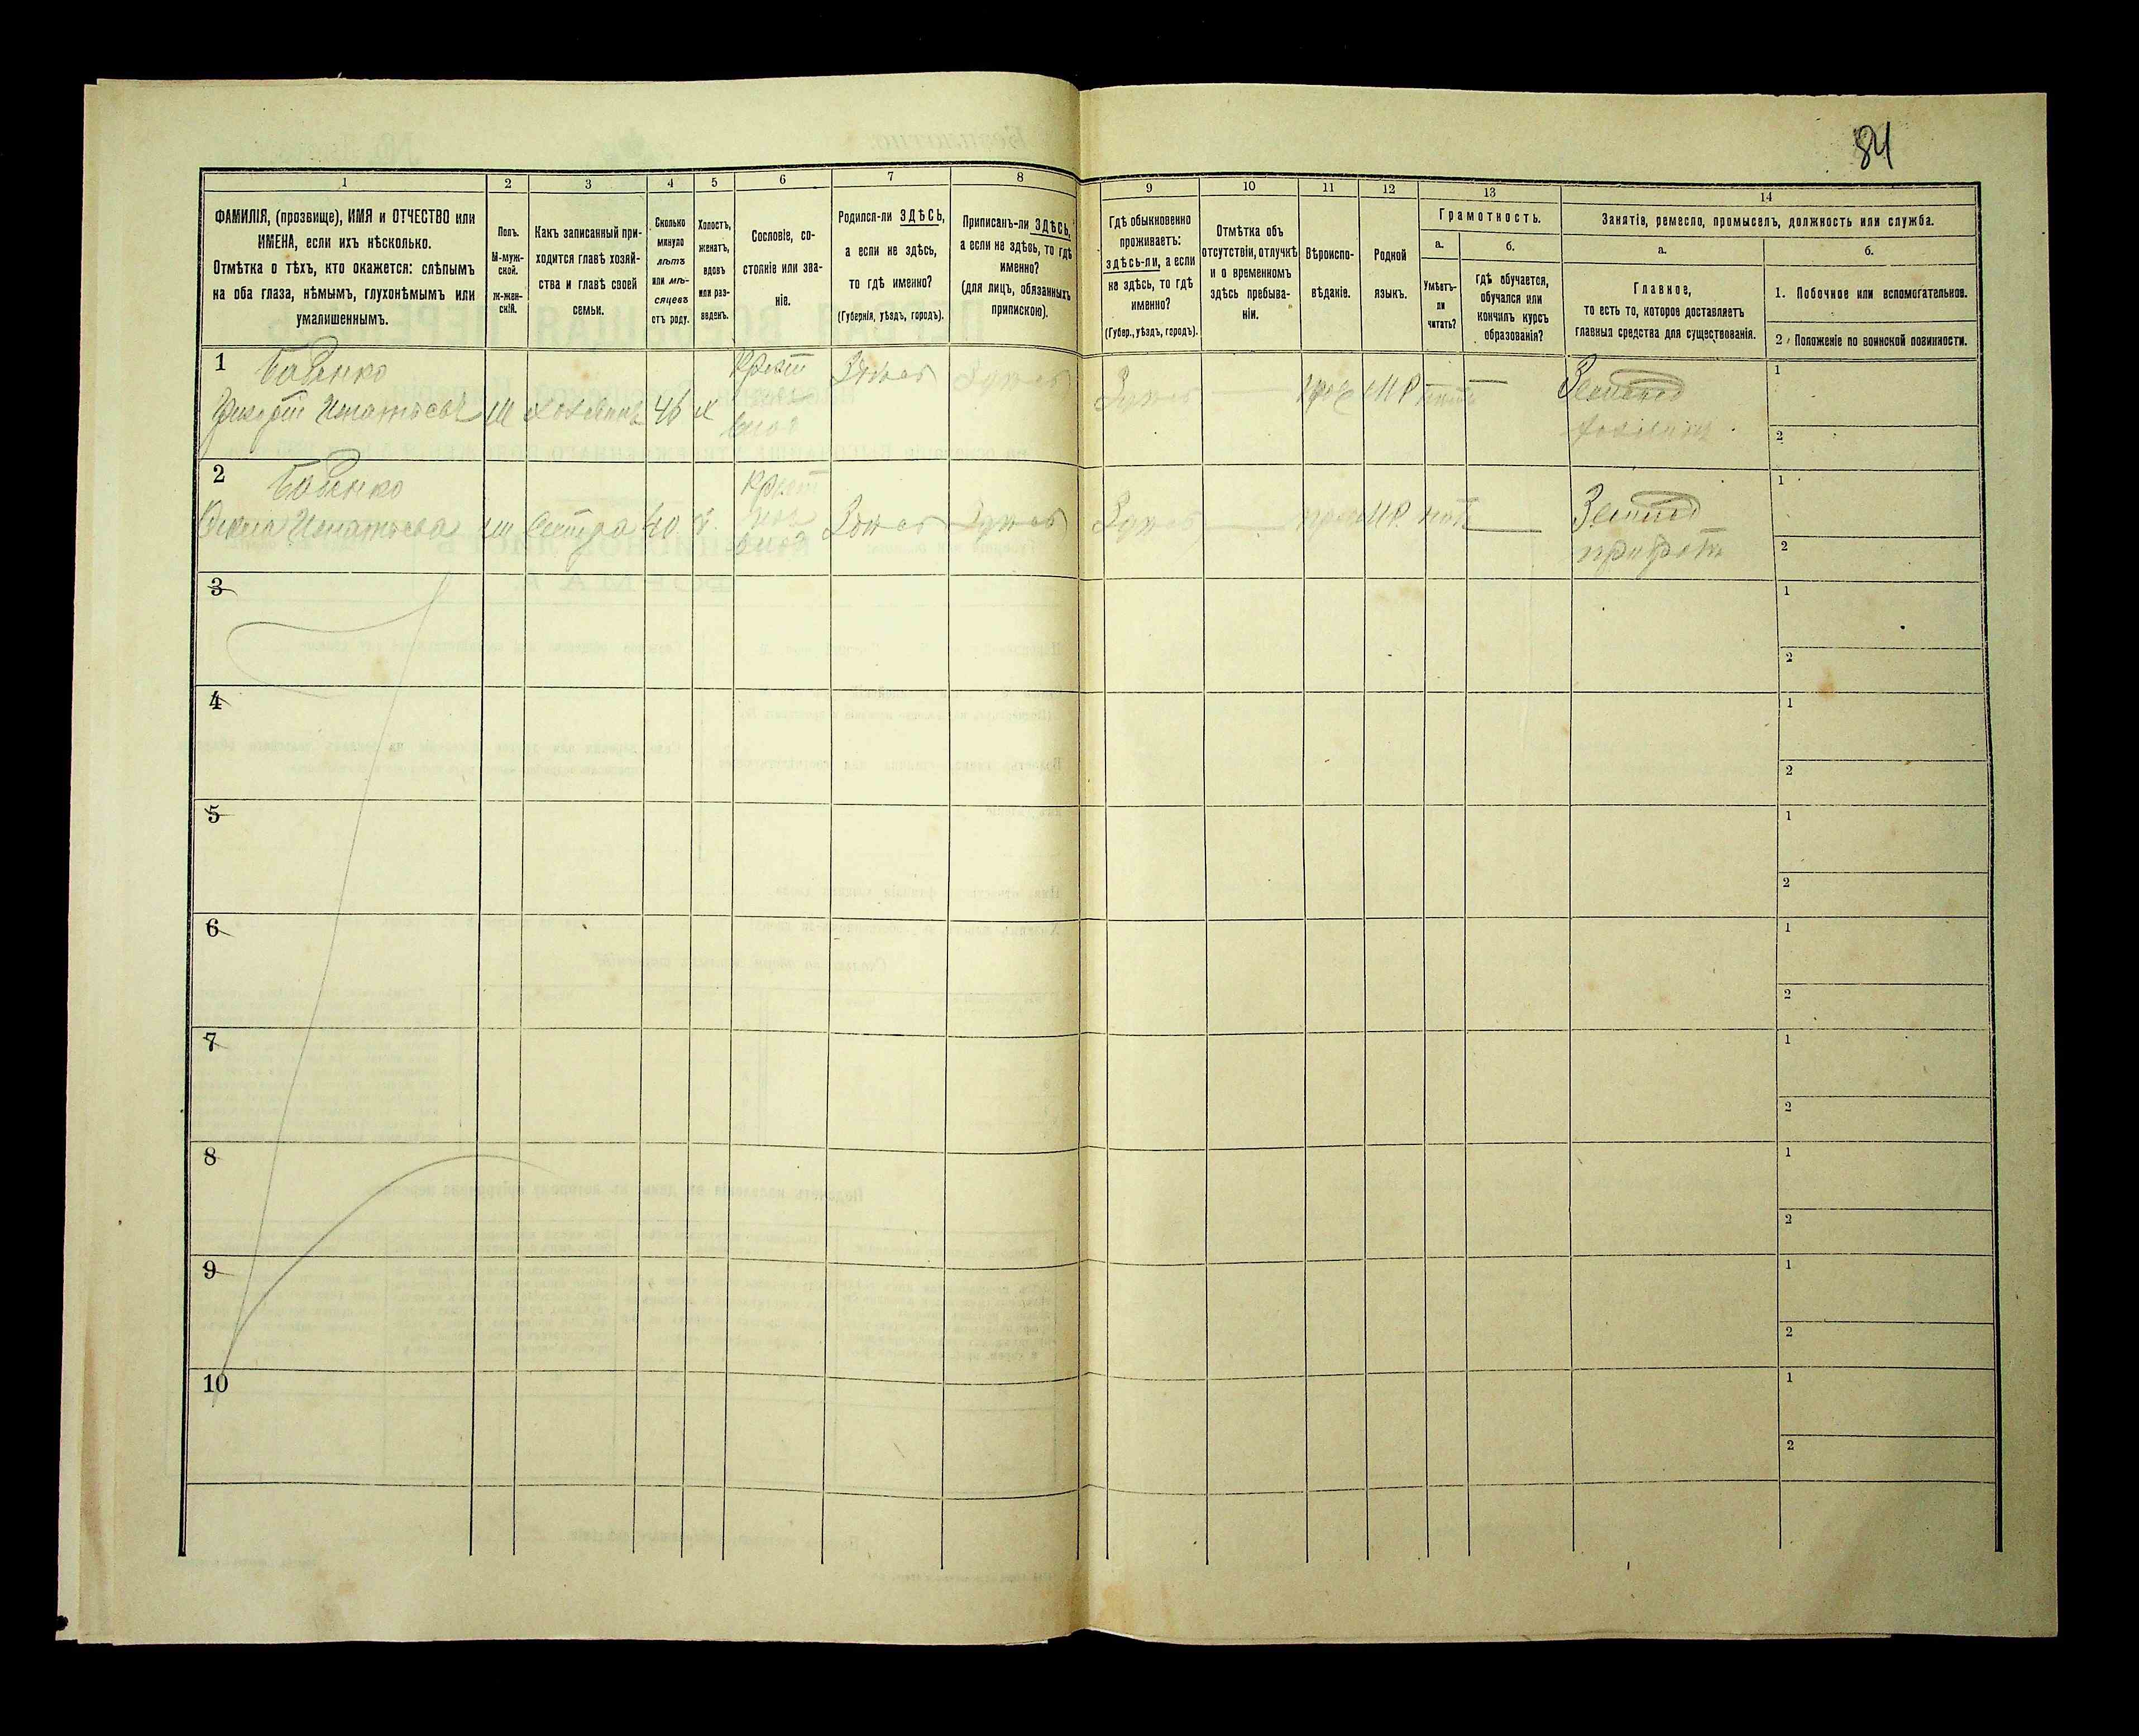 84
1
2
3
4
5
6
7
8
9
10
11
12
13
14
ФАМИЛІЯ, (прозвище), ИМЯ и ОТЧЕСТВО или
ИМЕНА, если ихъ нѣсколько.
Отмѣтка о тѣхъ, кто окажется: слѣпымъ
на оба глаза, нѣмымъ, глухонѣмымъ или
умалишеннымъ.
Полъ.
М-муж-
ской.
Ж-жен-
скій.
Какъ записанный при-
ходится главѣ хозяй-
ства и главѣ своей
семьи.
Сколько
минуло
лѣтъ
или мѣ-
сяцевъ
отъ роду.
Холостъ,
женатъ,
вдовъ
или раз-
веденъ.
Сословіе, со-
стояніе или зва-
ніе.
Родился-ли ЗДѢСЬ,
а если не здѣсь,
то гдѣ именно?
(Губернія, уѣздъ, городъ).
Приписанъ-ли ЗДѢСЬ,
а если не здѣсь, то гдѣ
именно?
(для лицъ, обязанныхъ
припискою).
Гдѣ обыкновенно
проживаетъ:
здѣсь-ли, а если
не здѣсь, то гдѣ
именно?
(Губер., уѣздъ, городъ).
Отмѣтка объ
отсутствіи, отлучкѣ
и о временномъ
здѣсь пребыва-
ніи.
Вѣроиспо-
вѣданіе.
Родной
языкъ.
Грамотность.
а.
б.
Умѣетъ-
ли
читать?
Гдѣ обучается,
обучался или
кончилъ курсъ
образованія?
Занятія, ремесло, промыселъ, должность или служба.
а.
б.
Главное,
то есть то, которое доставляетъ
главныя средства для существованія.
1. Побочное или вспомогательное.
2. Положеніе по воинской повинности.
1
Бабенко
Игнатьевъ
М
хозяинъ
46
Х
Крест
Здѣсь
Здѣсь
Здѣсь
М Р
Землед
хозяинъ
1
2
2
Бабенко
Игнатьева
сестра
40
Крест
Здѣсь
Здѣсь
Здѣсь
М Р
нѣтъ
Землед
1
2
3
1
2
4
1
2
5
1
2
6
1
2
7
1
2
8
1
2
9
1
2
10
1
2